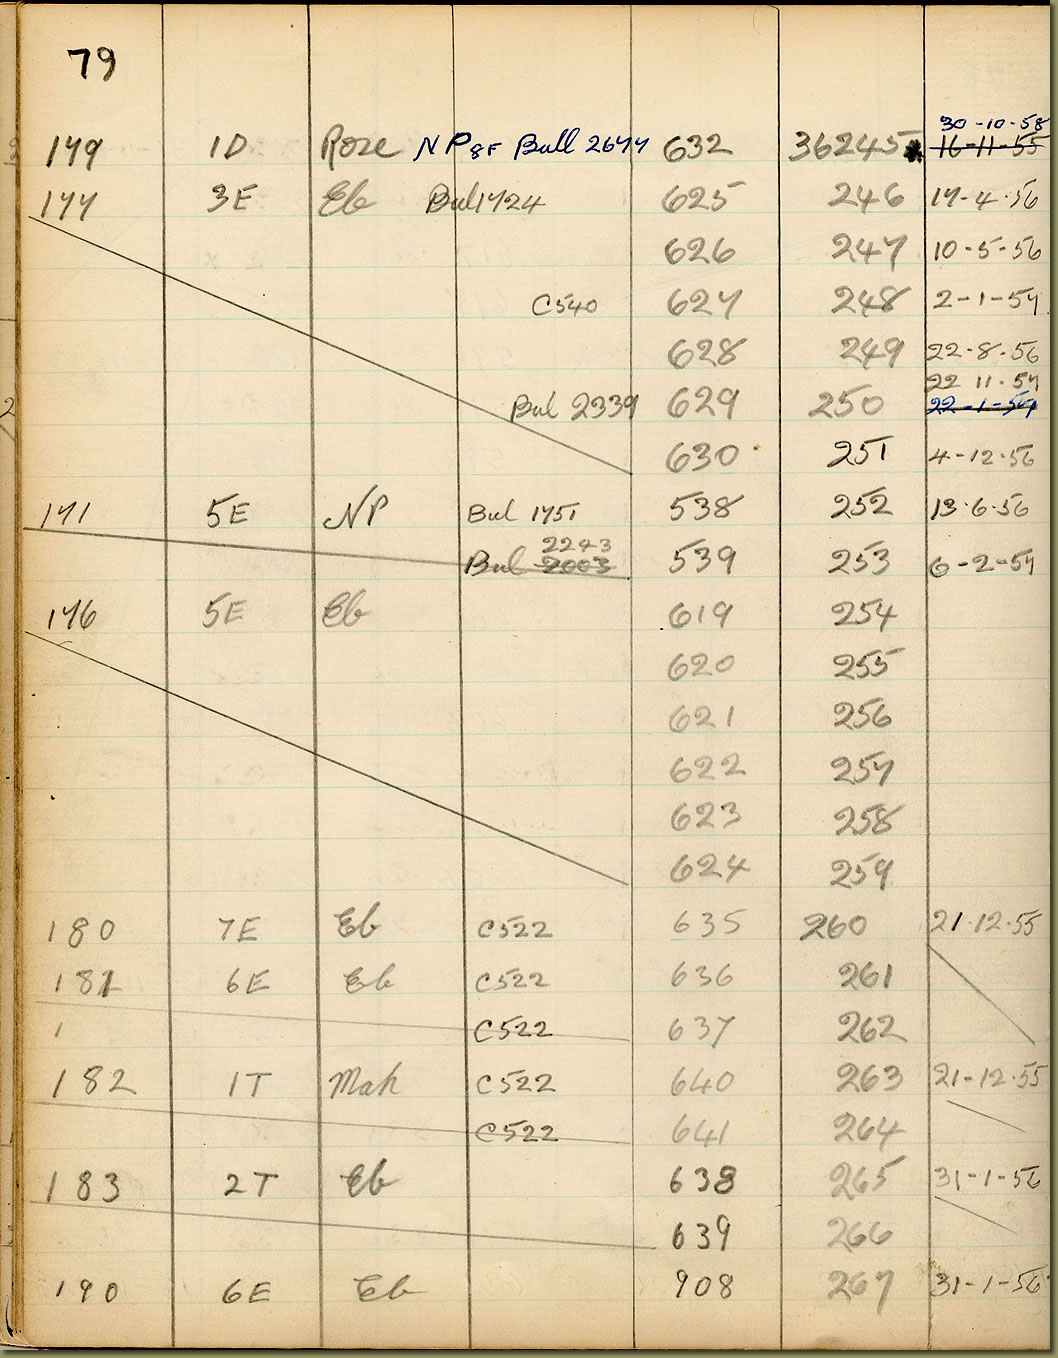 79
30-10-58
179 1D Rose NP 8F Bull 2677 632 36245 16-11-55
177 3E Eb Bul 1724 625 246 17-4-56
626 247 10-5-56
C540 627 248 2-1-57
628 249 22-8-56
22 11-57
Bul 2339 629 250 22-1-57
630 251 4-12-56
171 5E NP Bul 1751 538 252 13-6-56
2243
Bul 2003 539 253 6-2-57
176 5E Eb 619 254
620 255
621 256
622 257
623 258
624 259
180 7E Eb C522 635 260 21-12-55
181 6E Eb C522 636 261
1 C522 637 262
182 1T Mah C522 640 263 21-12-55
C522 641 264
183 2T Eb 638 265 31-1-56
639 266
190 6E Eb 908 267 31-1-56